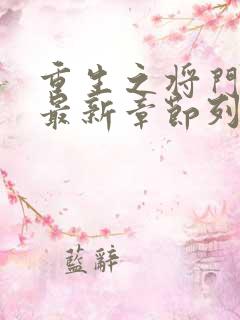 重生之将门
最新章節列
藍辭